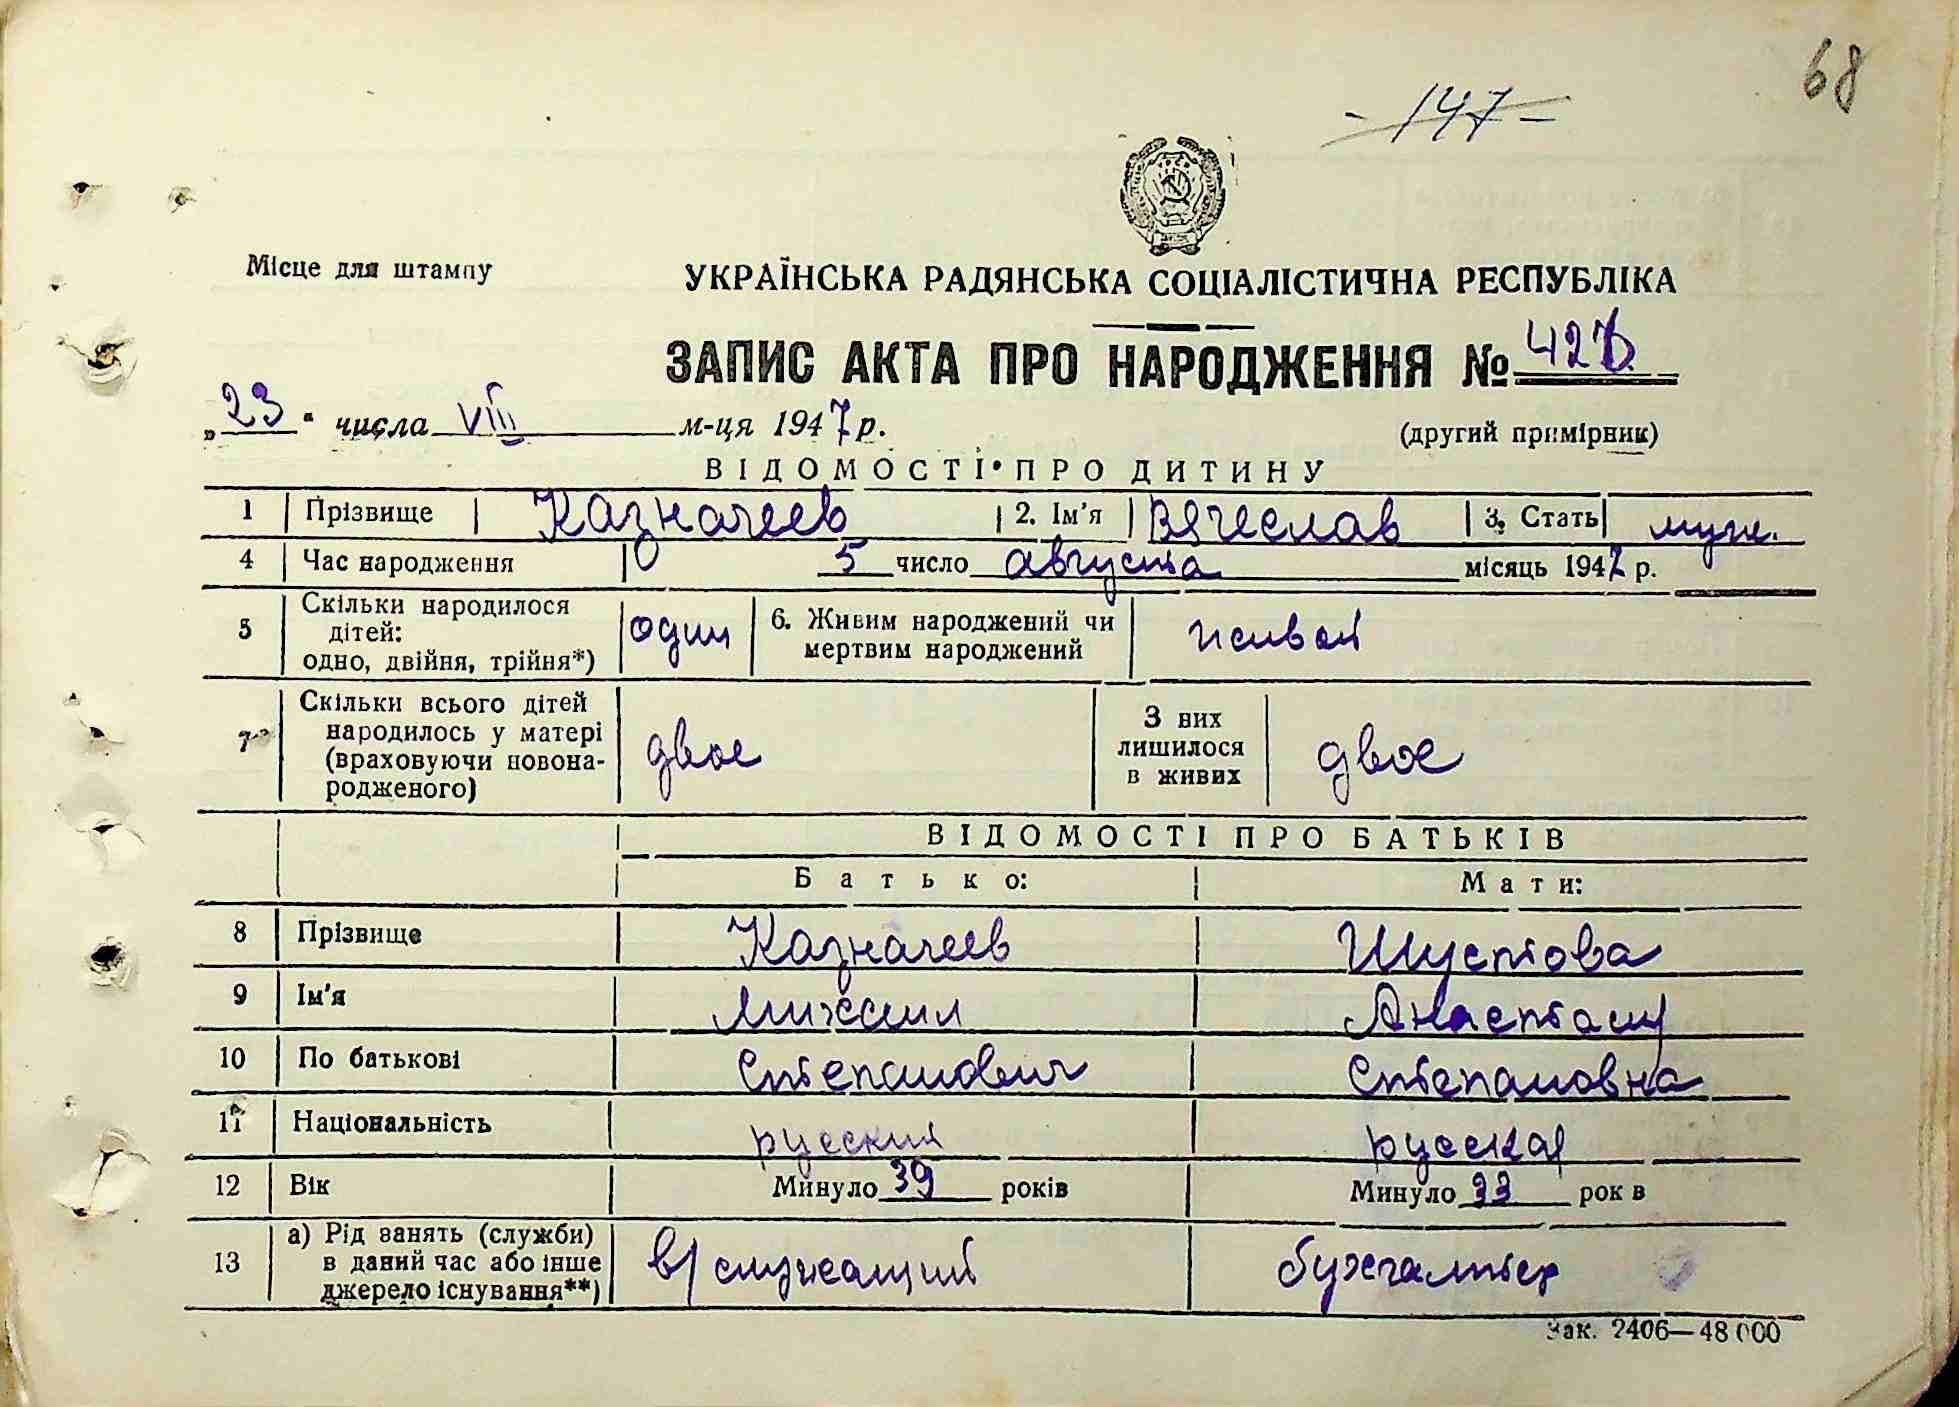 68
- 147 -
Місце для штампу
УКРАЇНСЬКА РАДЯНСЬКА СОЦІАЛІСТИЧНА РЕСПУБЛІКА
ЗАПИС АКТА ПРО НАРОДЖЕННЯ №
„23“ числа VIII м-ця 1947 р.
(другий примірник)
ВІДОМОСТІ ПРО ДИТИНУ
1 Прізвище Казначеев 2. Ім'я Вячеслав 3. Стать муж.
4 Час народження 5 число августа місяць 1947 р.
5 Скільки народилося дітей: одно, двійня, трійня*) один 6. Живим народжений чи мертвим народжений живой
7 Скільки всього дітей народилось у матері (враховуючи новонародженого) двое З них лишилося в живих двое
ВІДОМОСТІ ПРО БАТЬКІВ
Батько: Мати:
8 Прізвище Казначеев Шустова
9 Ім'я Михаил Анастасия
10 По батькові Степанович Степановна
11 Національність русский русская
12 Вік Минуло 39 років Минуло 33 рок в
13 а) Рід занять (служби) в даний час або інше джерело існування**) в/служащий бухгалтер
Зак. 2406—48000